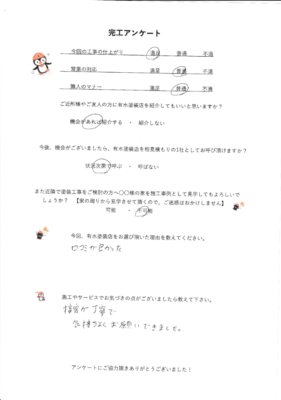 完工アンケート
今回の工事の仕上がり 満足 普通 不満
営業の対応 満足 普通 不満
職人のマナー 満足 普通 不満
ご近所様やご友人の方に有水塗装店を紹介してもいいと思いますか?
機会があれば紹介する ・ 紹介しない
今後、機会がございましたら、有水塗装店を相見積もりの1社としてお呼び頂けますか?
状況次第で呼ぶ ・ 呼ばない
また近隣で塗装工事をご検討の方へ〇〇様の家を施工事例として見学してもよろしいで
しょうか? 【家の周りから見学させて頂くので、ご迷惑はおかけしません】
可能 ・ 不可能
今回、有水塗装店をお選び頂いた理由を教えてください。
口コミが良かった
施工やサービスでお気づきの点がございましたら教えて下さい。
接客が丁寧で
気持ちよくお願いできました。
アンケートにご協力頂きありがとうございました!